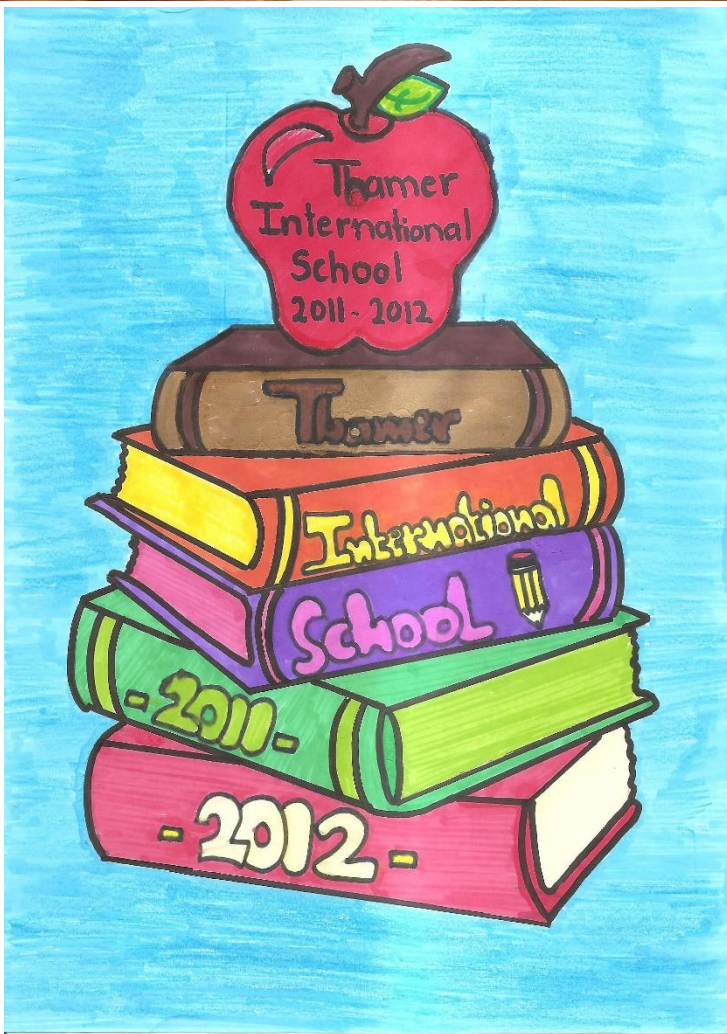 Thamer
International
School
2011-2012
Thamer
International
School
-2011-
-2012-